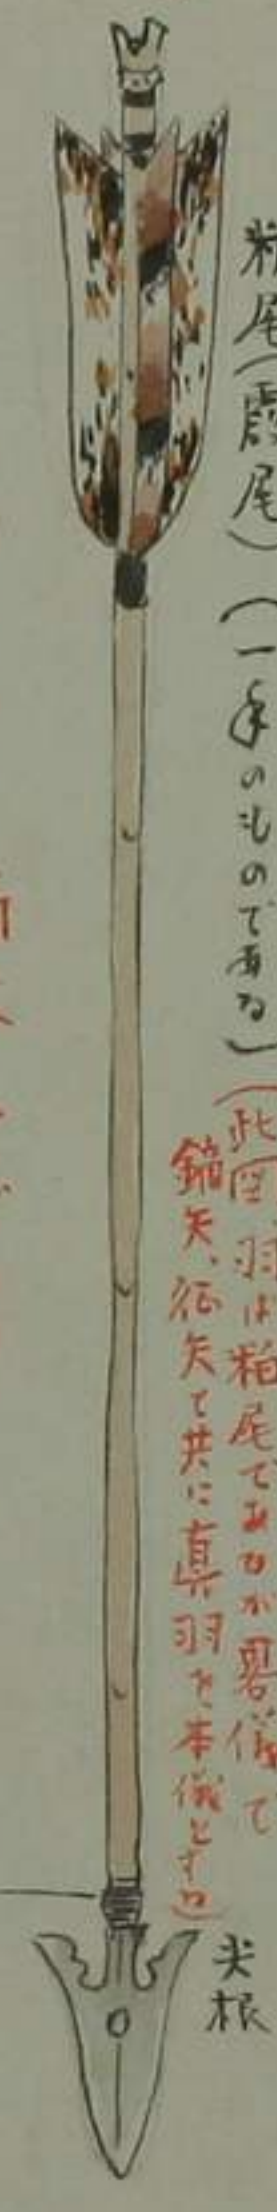 粕尾(霞尾)(一手のものである)
(此図羽は粕尾であるが畧儀で
鏑矢、征矢て共に真羽を本儀とする)
尖根